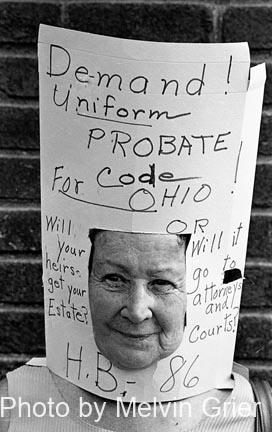 Demand!
Uniform
PROBATE
Code
For OHIO!
OR
Will
your
heirs
get your
Estate?
Will it
go to
attorneys
and
Courts!
H.B.- 86
Photo by Melvin Grier